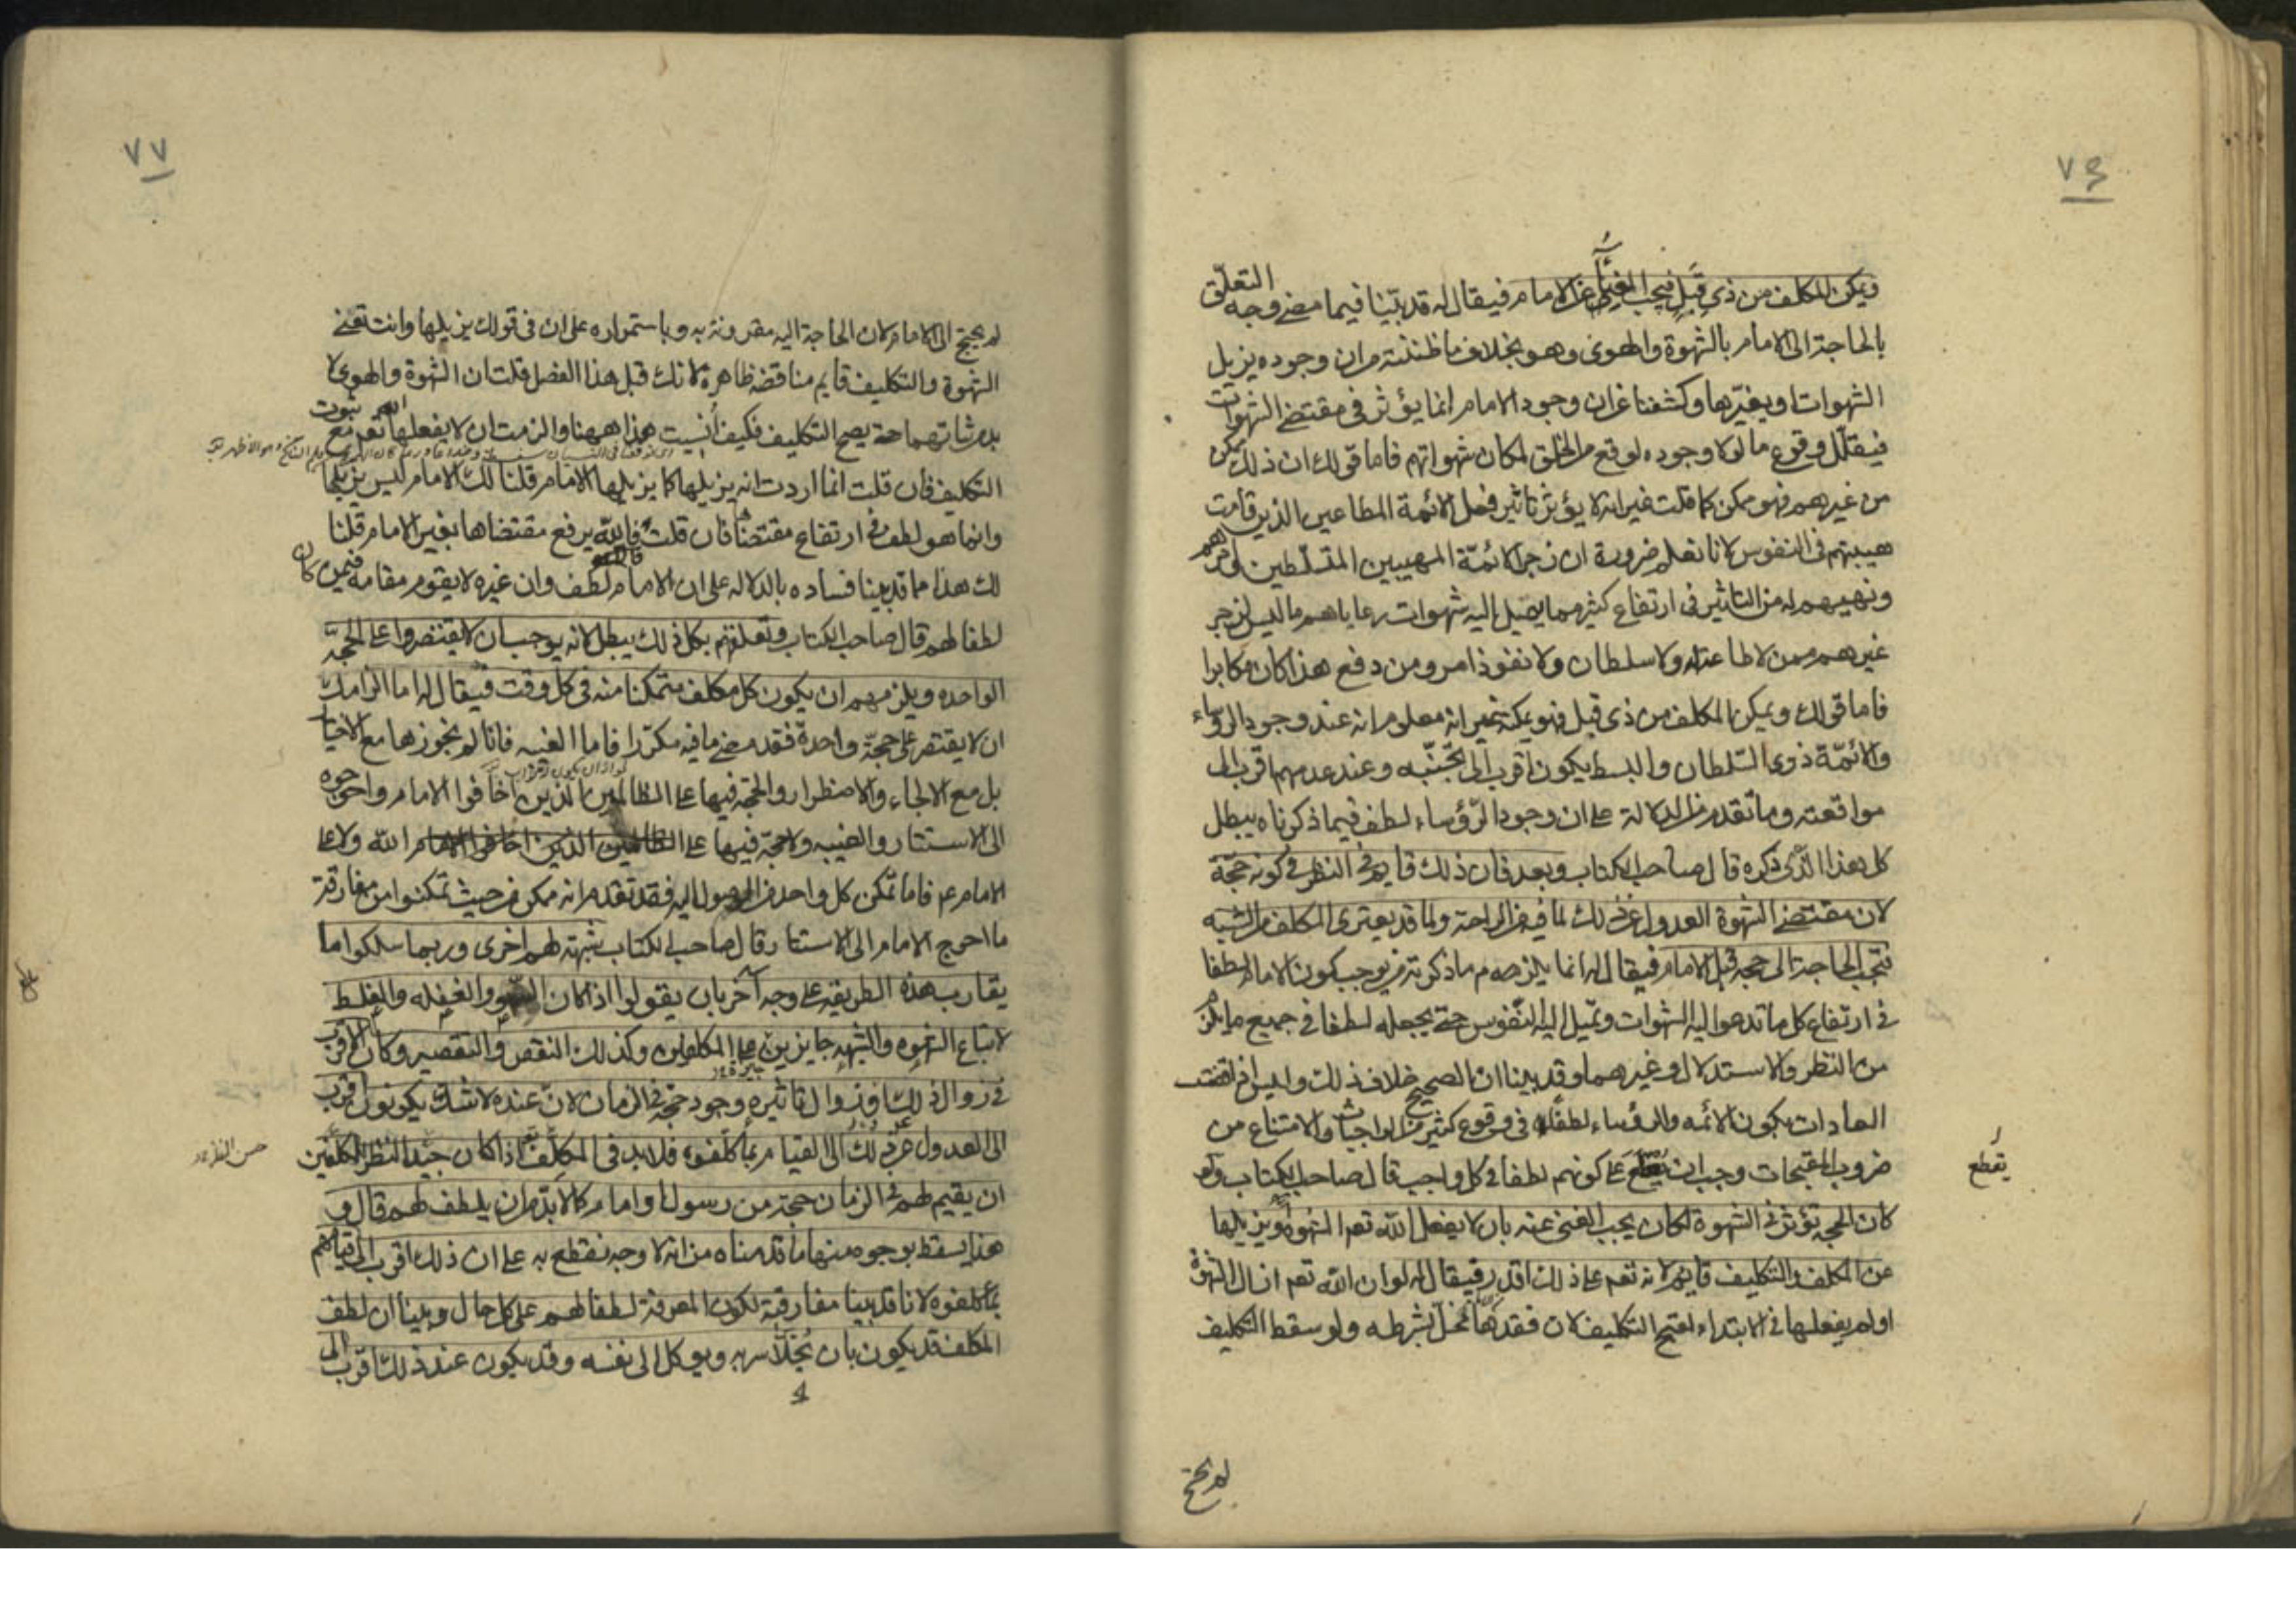 ٧٦
ويمكن المكلف من ذي قبل فيجب الغنى عن الامام فيقال له قد بيّنا فيما مضى وجه التعلّق
بالحاجة الى الامام بالشهوة والهوى وهو بخلاف ما ظننته من ان وجوده يزيل
الشهوات ويغيّرها وكشفنا عن ان وجود الامام انما يؤثر في مقتضى الشهوات
فيقلّل وقوع ما لولا وجوده لوقع من الخلق لمكان شهواتهم فاما قولك ان ذلك يمكن
من غيرهم فهو ممكن كما قلت غير انه لا يؤثر تاثير فعل الائمة المطاعين الذين قامت
هيبتهم في النفوس لانا نعلم ضرورة ان زجر الائمّة المهيبين المتسلّطين
ونهيهم له من التاثير في ارتفاع كثير مما يميل اليه شهوات رعاياهم ما ليس لزجر
غيرهم ممن لا طاعة له ولا سلطان ولا نفوذ امر ومن دفع هذا كان مكابرا
فاما قولك ويمكن المكلف من ذي قبل فهو يمكنه غير انه معلوم انه عند وجود الرؤساء
والائمّة ذوي السّلطان والبسط يكون اقرب الى تجنّبه وعند عدمهم اقرب الى
مواقعته وما تقدم من الدلالة على ان وجود الرّؤساء لطف فيما ذكرناه يبطل
كل هذا الّذى ذكره قال صاحب الكتاب وبعد فان ذلك قايم في النظر في كونه حجّة
لان مقتضى الشهوة العدول عن ذلك لما فيه من الراحة ولما قد يعترى المكلف من الشبه
فتجب الحاجة الى حجه قبل الامام فيقال له انما يلزمهم ما ذكرته من يوجب كون الامام لطفا
في ارتفاع كل ما تدعو اليه الشهوات وتميل اليه النّفوس حتى يجعله لطفا في جميع ما يلزم
من النظر والاستدلال وغيرهما وقد بينا ان الصحيح خلاف ذلك وليس اذا اقتضت
العادات بكون الائمه والرؤساء لطفا في وقوع كثير من الواجبات والامتناع من
ضروب المقبحات وجب ان يقطع على كونهم لطفا في كل واجب قال صاحب الكتاب ولو
يقطع
كان الحجه تؤثر في الشهوة لكان يجب الغنى عنه بان لا يفعل الله تعم الشهوة ويزيلها
عن المكلف والتكليف قايم لانه تعم على ذلك اقدر فيقال له لو ان الله تعم ازال الشهوة
او لم يفعلها في الابتداء لقبح التكليف لان فقدها مخل بشرطه ولو سقط التكليف
لم يحتج
٧٧
لم يحتج الى الامام لان الحاجة اليه مقرونة به وباستمراره على ان في قولك يزيلها وانت تعنى
الشهوة والتكليف قايم مناقضة ظاهرة لانك قبل هذا الفصل قلت ان الشهوة والهوى لا
بد من ثباتهما حتى يصح التكليف فكيف أنسيت هذا ههنا والزمت ان لا يفعلها الله تعم مع ثبوت
التكليف فان قلت انما اردت انه يزيلها كما يزيلها الامام قلنا لك الامام ليس يزيلها
وانما هو لطف في ارتفاع مقتضاها فان قلت فالله يرفع مقتضاها بغير الامام قلنا
لك هذا مما قد بينا فساده بالدلاله على ان الامام لطف وان غيره لا يقوم مقامه فيمن كان
لطفا لهم قال صاحب الكتاب وتعلقهم بكل ذلك يبطل لانه يوجب ان لا يقتصروا على الحجّة
الواحده ويلزمهم ان يكون كل مكلف متمكنا منه في كل وقت فيقال له اما الزامك
ان لا يقتصر على حجّة واحدة فقد مضى ما فيه مكرّرا فاما الغيبه فانا لم نجوزها مع الاختيار
بل مع الالجاء والاضطرار والحجة فيها على الظالمين الّذين اخافوا الامام واحوجوه
الى الاستتار والغيبه ولا حجّة فيها على الله ولا على
الامام عم فاما تمكن كل واحد من الوصول اليه فقد تقدم انه ممكن من حيث تمكنوا من مفارقة
ما احوج الامام الى الاستتار قال صاحب الكتاب شبهة لهم اخرى وربما سلكوا ما
يقارب هذه الطريقه على وجه آخر بان يقولوا اذا كان السّهو والغفله والغلط
لاتباع الشهوه والشبهه جايزين على المكلفين وكذلك النقص والتقصير وكان الاقرب
في زوال ذلك او زوال تاثيره وجود حجة في الزمان لانّ عنده لا شك يكونون اقرب
الى العدول عن ذلك الى القيام بما كلّفوه فلا بد في المكلّف اذا كان جيّد النظر للمكلفين
حسن النظر
ان يقيم لهم في الزمان حجة من رسول او امام كما لا بدّ من ان يلطف لهم قال و
هذا يسقط بوجوه منها ما قدمناه من انه لا وجه نقطع به على ان ذلك اقرب الى قيامهم
بما كلفوه لانا قد بينا مفارقته لكون المعرفة لطفا لهم على كل حال وبينا ان لطف
المكلف قد يكون بان يخلّا سربه ويوكل الى نفسه وقد يكون عند ذلك اقرب الى